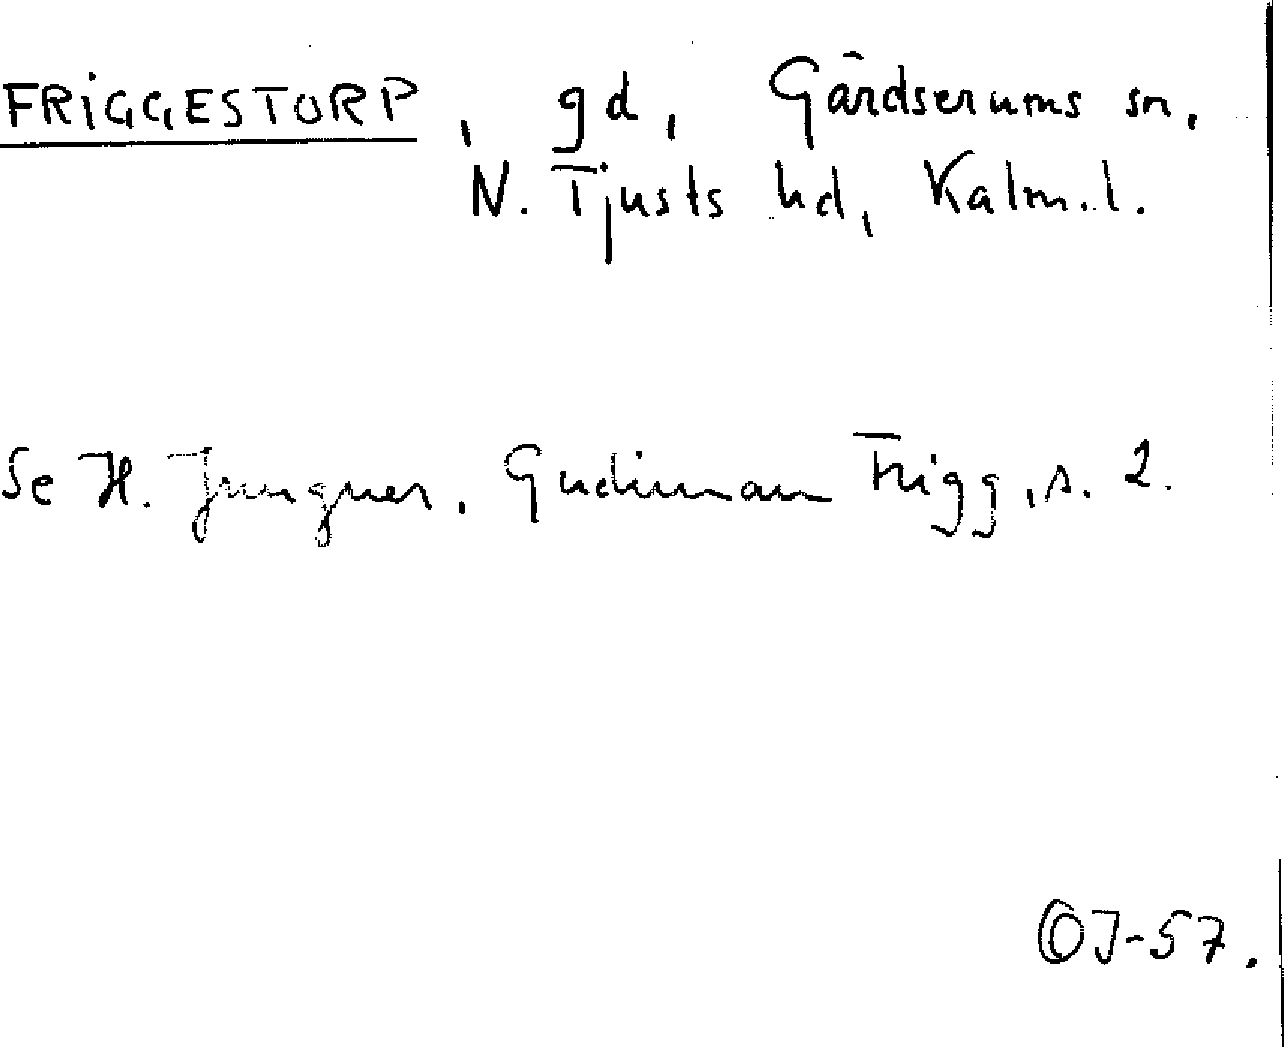 FRIGGESTORP, gd, Gärdserums sn,
N. Tjusts hd, Kalm. l.
Se H. Jungner, Gudinnan Frigg, s. 2.
OJ-57.